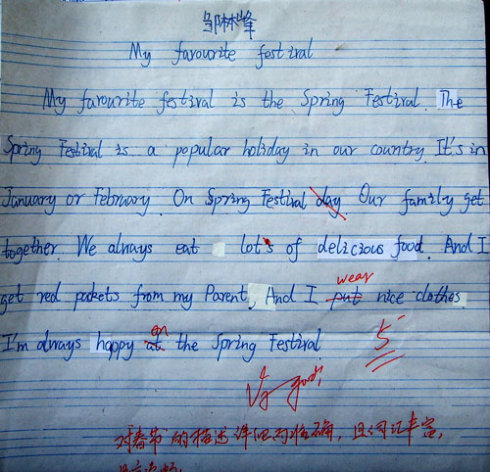 邹林峰
My favourite festival
My favourite festival is the Spring Festival. The
Spring Festival is a popular holiday in our country. It's in
January or February. On Spring Festival day Our family get
together. We always eat lot's of delicious food. And I
get red pakets from my Parent, And I put nice clothes.
wear
I'm always happy at the Spring Festival
on
5
V good!
对春节的描述详细而准确,且词汇丰富,